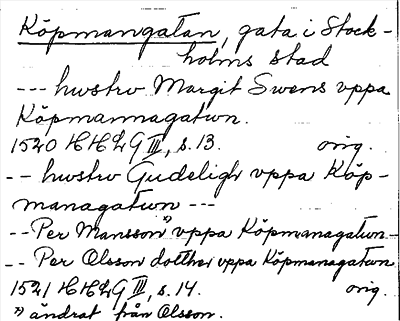 Köpmangatan, gata i Stock-
holms stad
--- hwstrv Margit Swens vppa
Köpmannagatwn.
1520 HHLG III, s. 13. orig.
-- hwstrv Gudeligh vppa Köp-
managatwn ---
-- Per Mansson *) vppa Köpmanagatwn --
-- Per Olsson dotther vppa Köpmanagatwn
1521 HHLG III, s. 14. orig.
*) ändrat från Olsson.